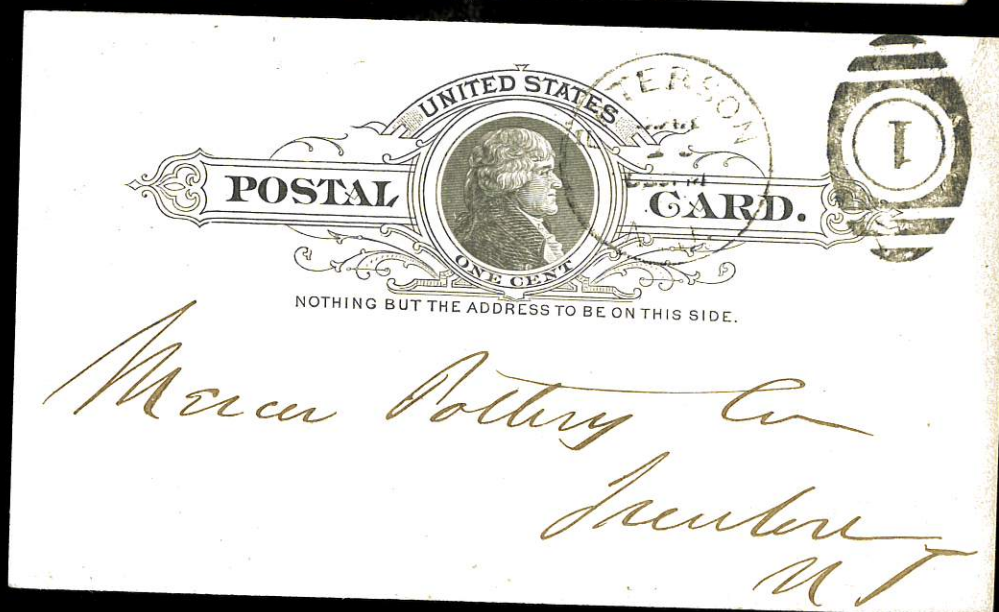 UNITED STATES
POSTAL CARD.
ONE CENT
NOTHING BUT THE ADDRESS TO BE ON THIS SIDE.
TERSON
1
Mercer Pottery Co
Trenton
N J